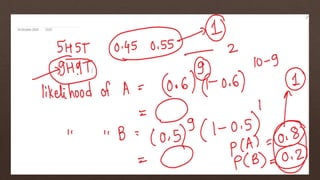 5H5T 0.45 0.55 1
2
9H9T
likelihood of A = (0.6)^9 (1-0.6)^10-9
=
" " B = (0.5)^9 (1-0.5)^1
=
1
P(A) = 0.8
P(B) = 0.2